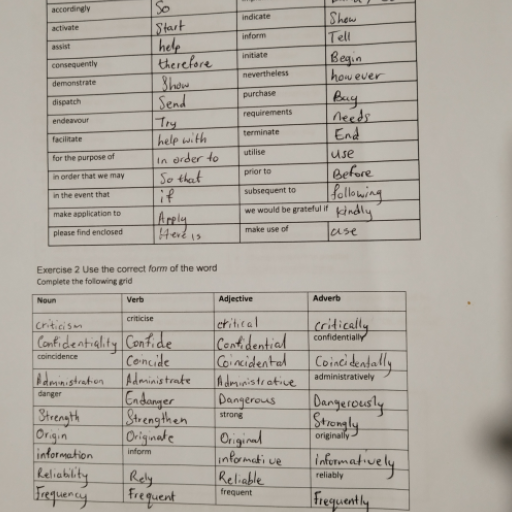 accordingly So
activate Start indicate Show
assist help inform Tell
consequently therefore initiate Begin
demonstrate Show nevertheless however
dispatch Send purchase Buy
endeavour Try requirements needs
facilitate help with terminate End
for the purpose of in order to utilise use
in order that we may So that prior to Before
in the event that if subsequent to following
make application to Apply we would be grateful if kindly
please find enclosed Here is make use of use
Exercise 2 Use the correct form of the word
Complete the following grid
Noun Verb Adjective Adverb
criticism criticise critical critically
Confidentiality Confide Confidential confidentially
coincidence Coincide Coincidental Coincidentally
Administration Administrate Administrative administratively
danger Endanger Dangerous Dangerously
Strength Strengthen strong Strongly
Origin Originate Original originally
information inform informative informatively
Reliability Rely Reliable reliably
Frequency Frequent frequent Frequently